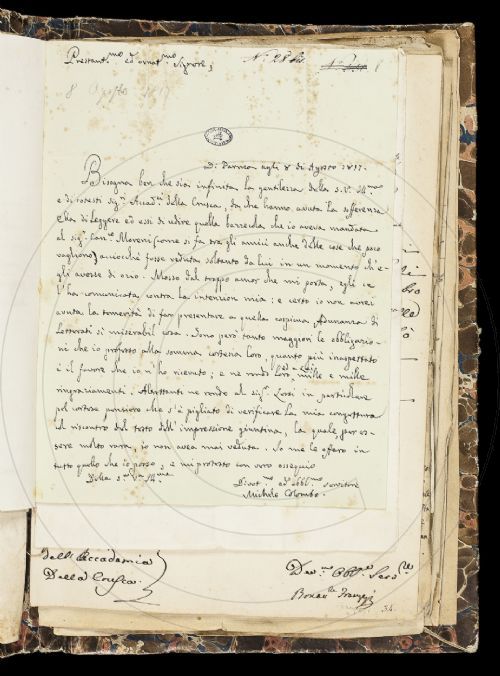 Prestant.mo ed ornat.mo Signore,
N.° 28 bis
8 Agosto 1817
Di Parma agli 8 di Agosto 1817.
Bisogna ben che sia infinita la gentilezza della S.V. Ill.ma
e di cotesti sig.ri Accad.ci della Crusca, da che hanno avuta la sofferenza
Ella di leggere ed essi di udire quella bazzecola che io aveva mandata
al sig. Can.co Moreni (come si fa tra gli amici anche delle cose che poco
vagliono) acciocchè fosse veduta soltanto da lui in un momento ch'e-
gli avesse di ozio. Mosso dal troppo amor che mi porta, egli ce
l'ha comunicata contra la intenzion mia: e certo io non avrei
avuta la temerità di far presentare a quella cospicua Adunanza di
Letterati sì miserabil cosa. Sono però tanto maggiori le obbligazio-
ni che io professo alla somma cortesia loro, quanto più inaspettato
è il favore che io n'ho ricevuto; e ne rendo loro mille e mille
ringraziamenti. Altrettanti ne rendo al sig.r in particolare
pel cortese pensiero che s'è pigliato di verificare la mia congettura
col riscontro del testo dell'impressione giuntina, la quale, per es-
sere molto rara, io non avea mai veduta. Io me le offero in
tutto quello che io posso, e mi protesto con vero ossequio
Della S. V. Ill.ma
Divot.mo ed obbl.mo servitore
Michele Colombo.
dell'Accademia
Della Crusca.
Dev.mo Obb.mo Serv.re
34.